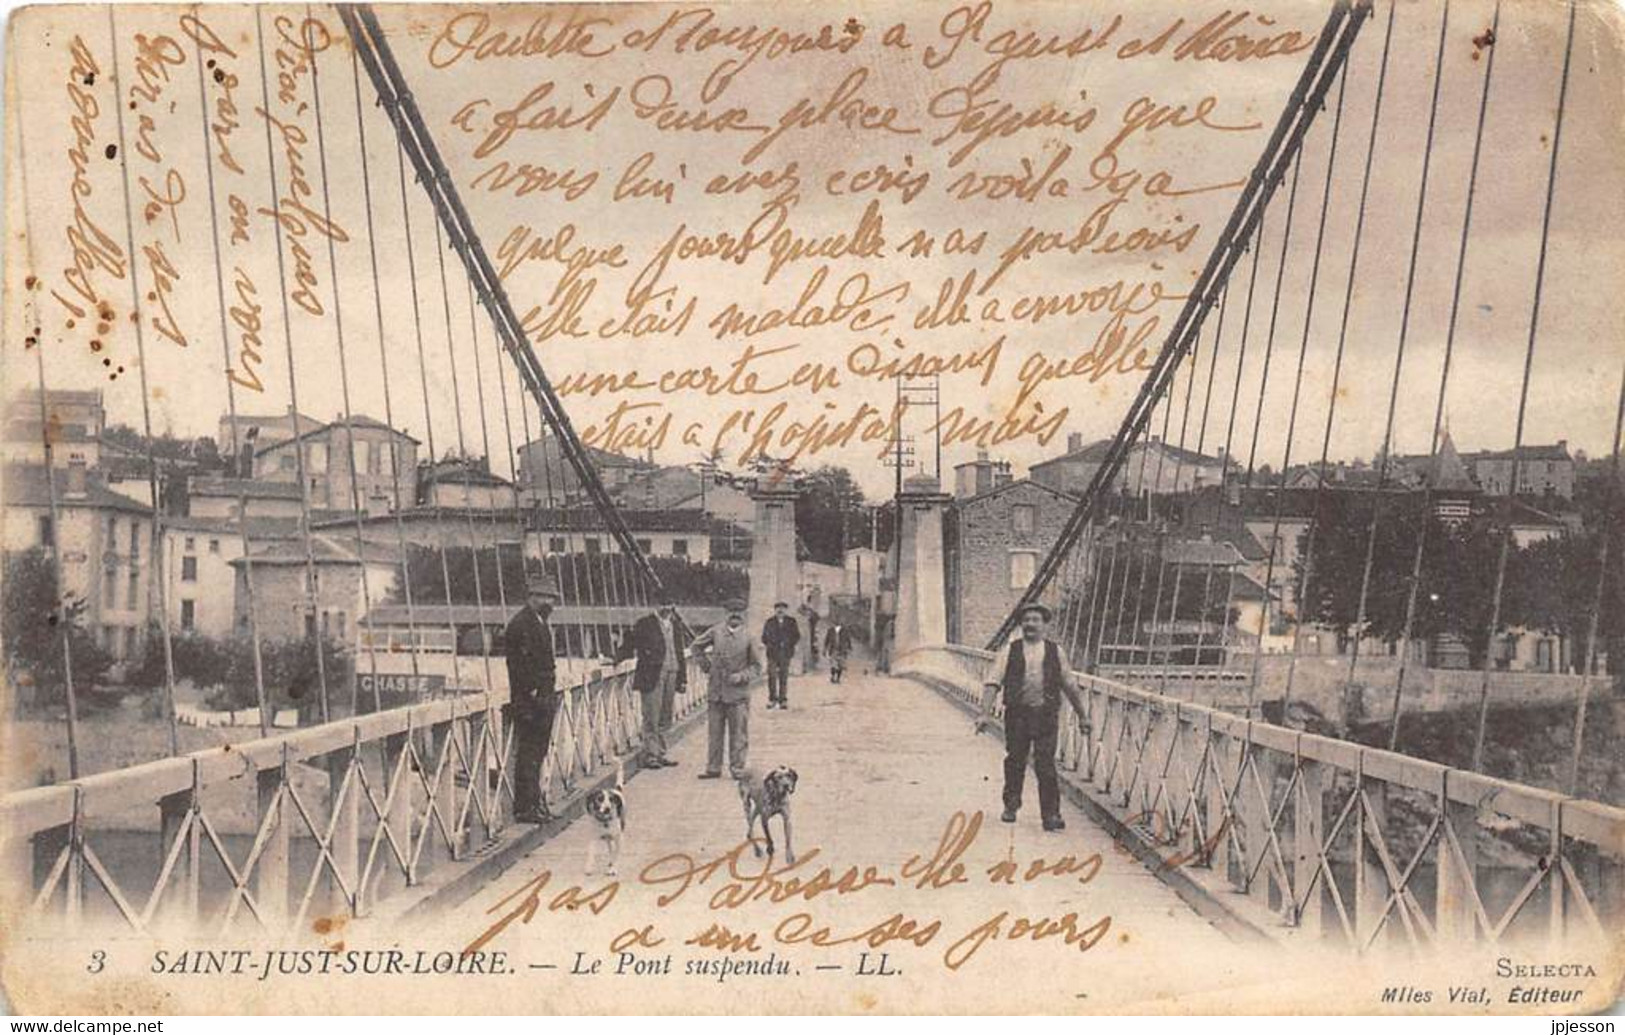 Paulette et toujours a St just et Marie
a fait deux place depuis que
vous lui avez ecris voila dya
quelque jours quelle nas pas ecris
elle etait malade elle a envoyé
une carte en disant quelle
etait a l'hopital mais
pas d'adresse elle nous dit
a un de ses jours.
Draiquelques
jours on vous
ecrias du des
nouvelles.
CHASSE
3 SAINT-JUST-SUR-LOIRE. — Le Pont suspendu. — LL.
SELECTA
Mlles Vial, Éditeur
www.delcampe.net
jpjesson